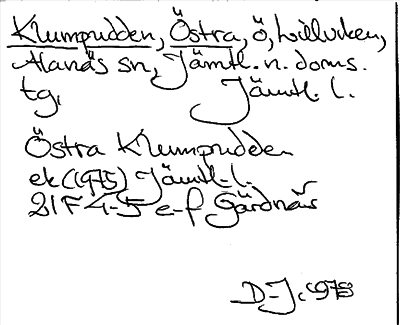 Klumpudden, Östra, ö, Lillviken,
Alanäs sn, Jämtl. n. doms.
tg. Jämtl. l.
Östra Klumpudden
ek (1975) Jämtl. l.
21F 4-5 e-f Gärdnäs
D-J. 1978